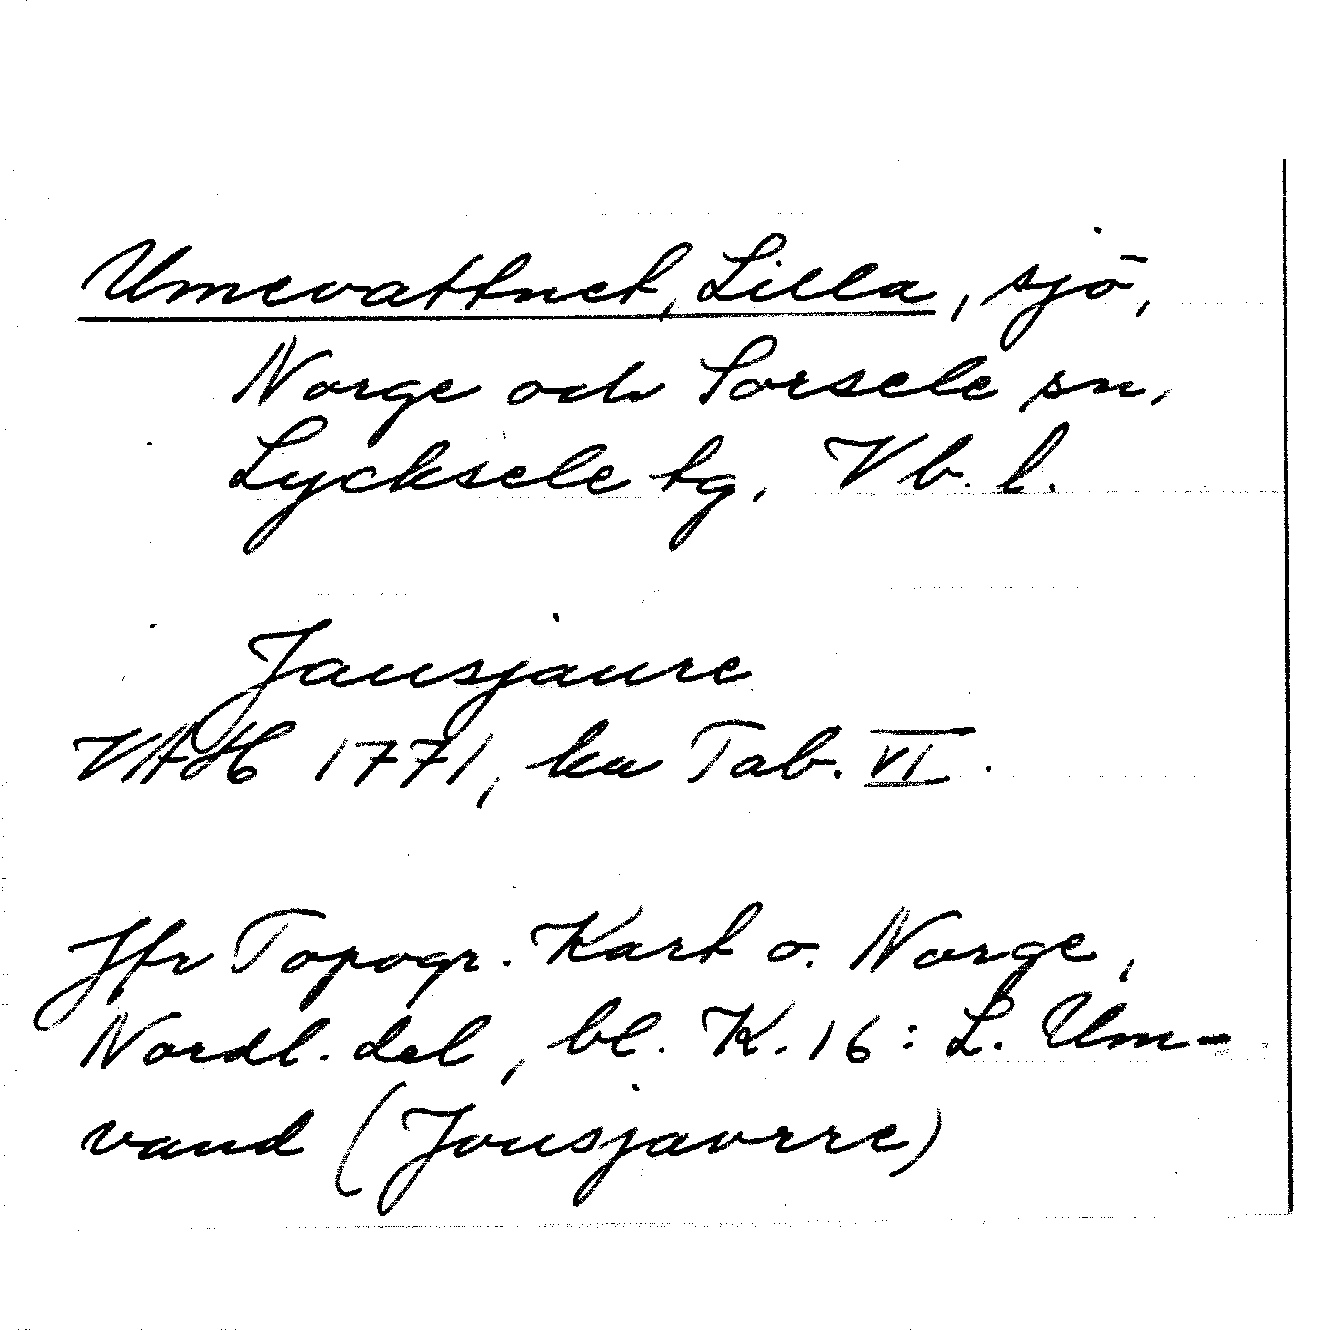 Umevattnet, Lilla, sjö,
Norge och Sorsele sn,
Lycksele tg, Vb. l.
Jausjaure
VAH 1771, ka Tab. VI.
Jfr Topogr. Kart o. Norge,
Nordl. del, bl. K. 16: L. Um-
vand (Jousjavrre)